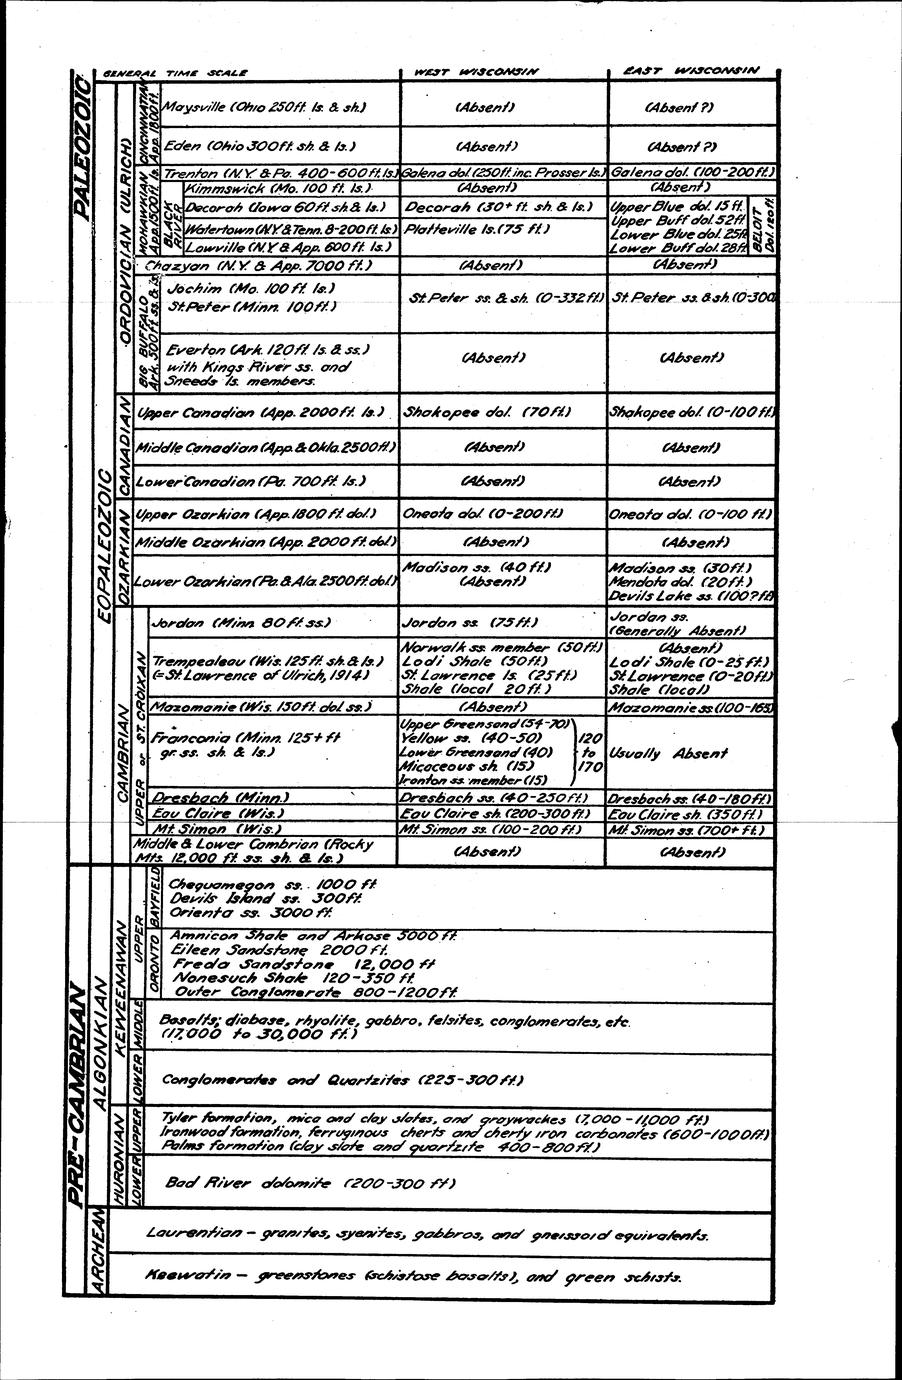 GENERAL TIME SCALE WEST WISCONSIN EAST WISCONSIN
PALEOZOIC
EOPALEOZOIC
ORDOVICIAN (ULRICH)
CINCINNATIAN
App. 1800 ft.
Maysville (Ohio 250 ft. ls. & sh.) (Absent) (Absent ?)
Eden (Ohio 300 ft. sh. & ls.) (Absent) (Absent ?)
MOHAWKIAN
App. 1500 ft. ls.
Trenton (N.Y. & Pa. 400-600 ft. ls.) Galena dol. (250 ft. inc. Prosser ls.) Galena dol. (100-200 ft.)
BLACK
RIVER
Kimmswick (Mo. 100 ft. ls.) (Absent) (Absent)
Decorah (Iowa 60 ft. sh. & ls.) Decorah (30+ ft. sh. & ls.) Upper Blue dol. 15 ft.
Upper Buff dol. 52 ft.
Watertown (N.Y. & Tenn. 8-200 ft. ls.) Platteville ls. (75 ft.) Lower Blue dol. 25 ft.
Lowville (N.Y. & App. 600 ft. ls.) Lower Buff dol. 28 ft.
BELOIT
Dol. 120 ft.
Chazyan (N.Y. & App. 7000 ft.) (Absent) (Absent)
BIG BUFFALO
Ark. 500 ft. ss. & ls.
Jochim (Mo. 100 ft. ls.)
St. Peter (Minn. 100 ft.) St. Peter ss. & sh. (0-332 ft.) St. Peter ss. & sh. (0-300
Everton (Ark. 120 ft. ls. & ss.)
with Kings River ss. and (Absent) (Absent)
Sneeds ls. members.
CANADIAN
Upper Canadian (App. 2000 ft. ls.) Shakopee dol. (70 ft.) Shakopee dol. (0-100 ft.)
Middle Canadian (App. & Okla. 2500 ft.) (Absent) (Absent)
Lower Canadian (Pa. 700 ft. ls.) (Absent) (Absent)
OZARKIAN
Upper Ozarkian (App. 1800 ft. dol.) Oneota dol. (0-200 ft.) Oneota dol. (0-100 ft.)
Middle Ozarkian (App. 2000 ft. dol.) (Absent) (Absent)
Lower Ozarkian (Pa. & Ala. 2500 ft. dol.) Madison ss. (40 ft.) Madison ss. (30 ft.)
(Absent) Mendota dol. (20 ft.)
Devils Lake ss. (100? ft.)
CAMBRIAN
UPPER or ST. CROIXAN
Jordan (Minn. 80 ft. ss.) Jordan ss. (75 ft.) Jordan ss.
(Generally Absent)
Trempealeau (Wis. 125 ft. sh. & ls.) Norwalk ss. member (50 ft.) (Absent)
(= St. Lawrence of Ulrich, 1914) Lodi Shale (50 ft.) Lodi Shale (0-25 ft.)
St. Lawrence ls. (25 ft.) St. Lawrence (0-20 ft.)
Shale (local 20 ft.) Shale (local)
Mazomanie (Wis. 150 ft. dol. ss.) (Absent) Mazomanie ss (100-165)
Franconia (Minn. 125+ ft. Upper Greensand (54-70)
gr. ss. sh. & ls.) Yellow ss. (40-50) 120
Lower Greensand (40) to Usually Absent
Micaceous sh. (15) 170
Ironton ss. member (15)
Dresbach (Minn.) Dresbach ss. (40-250 ft.) Dresbach ss. (40-180 ft.)
Eau Claire (Wis.) Eau Claire sh. (200-300 ft.) Eau Claire sh. (350 ft.)
Mt. Simon (Wis.) Mt. Simon ss. (100-200 ft.) Mt. Simon ss. (700+ ft.)
Middle & Lower Cambrian (Rocky
Mts. 12,000 ft. ss. sh. & ls.) (Absent) (Absent)
PRE-CAMBRIAN
ALGONKIAN
KEWEENAWAN
UPPER
BAYFIELD
Chequamegon ss. 1000 ft.
Devils Island ss. 300 ft.
Orienta ss. 3000 ft.
ORONTO
Amnicon Shale and Arkose 5000 ft.
Eileen Sandstone 2000 ft.
Freda Sandstone 12,000 ft.
Nonesuch Shale 120-350 ft.
Outer Conglomerate 800-1200 ft.
MIDDLE
Basalts, diabase, rhyolite, gabbro, felsites, conglomerates, etc.
(17,000 to 30,000 ft.)
LOWER
Conglomerates and Quartzites (225-300 ft.)
HURONIAN
UPPER
Tyler formation, mica and clay slates, and graywackes (7,000-11,000 ft.)
Ironwood formation, ferruginous cherts and cherty iron carbonates (600-1000 ft.)
Palms formation (clay slate and quartzite 400-800 ft.)
LOWER
Bad River dolomite (200-300 ft.)
ARCHEAN
Laurentian - granites, syenites, gabbros, and gneissoid equivalents.
Keewatin - greenstones (schistose basalts), and green schists.